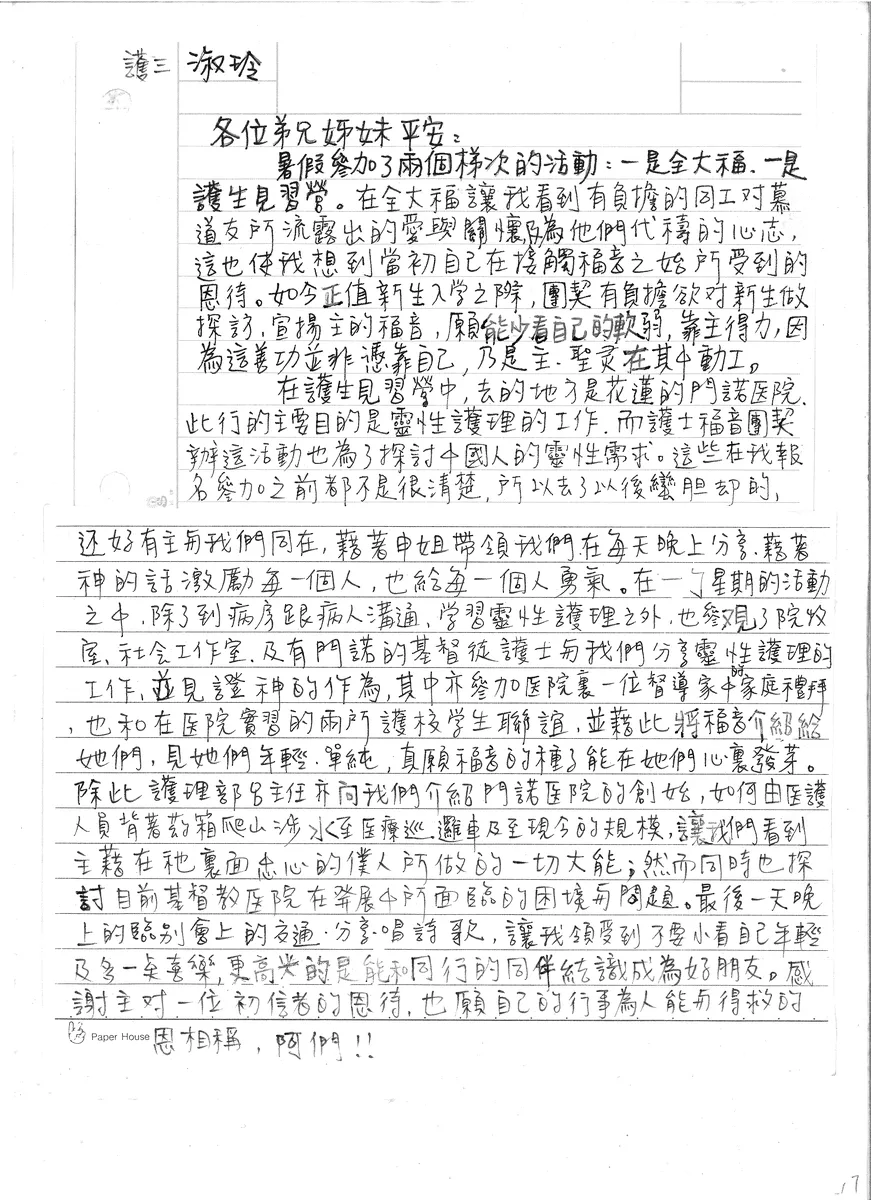 護三 淑玲
各位弟兄姊妹平安：
暑假參加了兩個梯次的活動：一是全大福、一是
護生見習營。在全大福讓我看到有負擔的同工对慕
道友所流露出的愛與關懷及為他們代禱的心志，
這也使我想到當初自己在接觸福音之始所受到的
恩待。如今正值新生入学之際，團契有負擔欲对新生做
探訪、宣揚主的福音，願能少看自己的軟弱，靠主得力，因
為這善功並非憑靠自己，乃是主．聖灵在其中動工。
在護生見習營中，去的地方是花蓮的門諾医院．
此行的主要目的是靈性護理的工作．而護士福音團契
辦這活動也為了探討中國人的靈性需求。這些在我報
名參加之前都不是很清楚，所以去了以後蠻胆却的，
还好有主与我們同在，藉著申姐帶領我們在每天晚上分享．藉著
神的話激勵每一個人，也給每一個人勇氣。在一个星期的活動
之中．除了到病房跟病人溝通、学習靈性護理之外．也參观了院牧
室、社会工作室．及有門諾的基督徒護士与我們分享靈性護理的
工作，並見證神的作為，其中亦參加医院裏一位督導家中的家庭禮拜
，也和在医院實習的兩所護校学生聯誼，並藉此將福音介紹給
她們，見她們年輕．單純，真願福音的種子能在她們心裏發芽。
除此護理部呂主任亦向我們介紹門諾医院的創始，如何由医護
人員背著葯箱爬山涉水至医療巡邏車及至現今的規模，讓我們看到
主藉在祂裏面忠心的僕人所做的一切大能；然而同時也探
討目前基督教医院在發展中所面臨的困境与問題。最後一天晚
上的臨別會上的交通．分享．唱詩歌，讓我領受到不要小看自己年輕
及多一点喜樂，更高兴的是能和同行的同伴結識成為好朋友。感
謝主对一位初信者的恩待，也願自己的行事為人能与得救的
Paper House 恩相稱，阿們！！
17